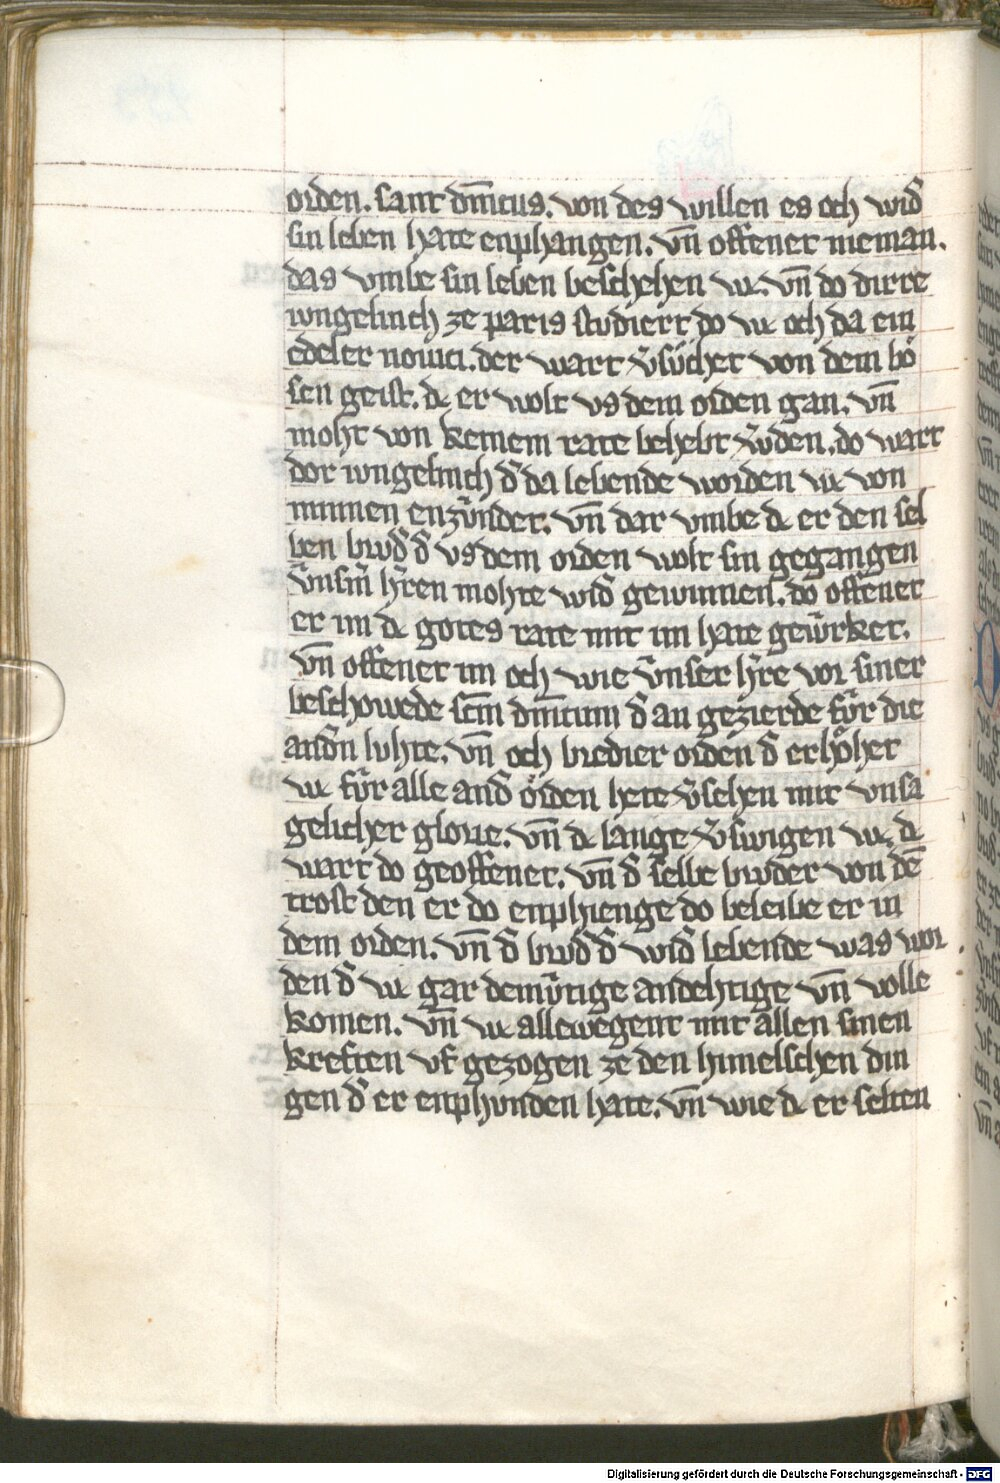 orden. sant dm̄icus. von des willen es och wid̄
sin leben hate enphangen. vn̄ offenet nieman.
das vmbe sin leben beschehen wc. vn̄ do dirre
iungelinch ze paris studiert do wc och da ein
edeler nouici. der wart v̄sůchet von dem bö
sen geist. dc er wolt vs dem orden gan. vn̄
moht von keinem rate behebt w̄den. do wart
dor iungelinch d̄ da lebende worden wc von
minnen enzúndet. vn̄ dar vmbe dc er den sel
ben brůd̄ d̄ vs dem orden wolt sin gegangen
v́nsm̄ h̄ren mohte wid̄ gewinnen. do offenet
er im dc gotes rate mit im hate gewúrket.
vn̄ offenet im och wie v́nser h̄re vor siner
beschowede scm̄ dm̄icum d̄ an gezierde fúr die
and̄n luhte. vn̄ och bredier orden d̄ erhöhet
wc fúr alle and̄ örden hete v̄sehen mit vnsa
gelicher glorie. vn̄ dc lange v̄swigen wc. dc
wart do geoffenet. vn̄ d̄ selbe brůder von dē
trost den er do enphienge do beleibe er in
dem orden. vn̄ d̄ brůd̄ d̄ wid̄ lebende was wor
den d̄ wc gar demútige andehtige vn̄ volle
komen. vn̄ wc allewegent mit allen sinen
kreften vf gezogen ze den himelschen din
gen d̄ er enphunden hate. vn̄ wie dc er selten
Digitalisierung gefördert durch die Deutsche Forschungsgemeinschaft - DFG